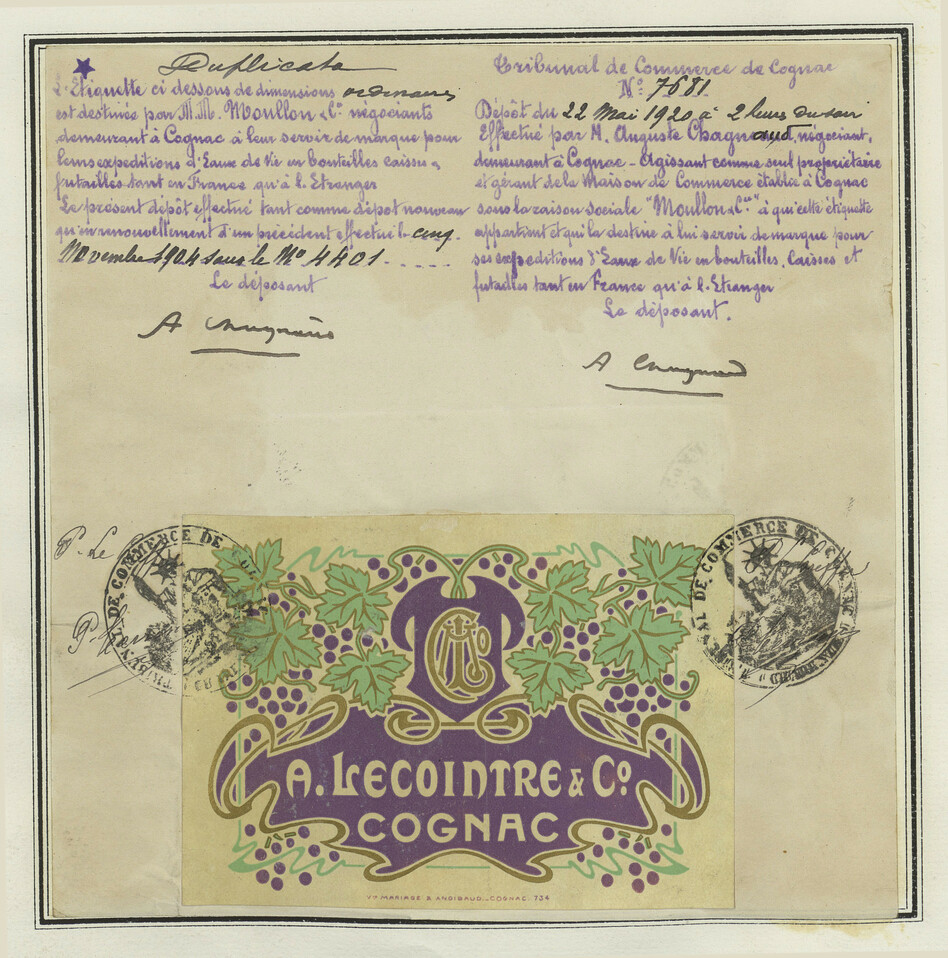 Duplicata
L'Etiquette ci dessons de dimensions ordinaires
est destinée par M.M. Moullon & Co négociants
demeurant à Cognac à leur servir de marque pour
leurs expeditions d'Eaux de Vie en bouteilles caisses
futailles tant en France qu'à l'Etranger
Le présent dépôt effectué tant comme dépot nouveau
qu'en renouvellement d'un précédent effectué le cinq
Novembre 1904 sous le No 4401
Le déposant
A Chagnaud
Tribunal de Commerce de Cognac
No 7681
Dépôt du 22 Mai 1920 à 2 heures du soir
Effectué par M. Auguste Chagnaud, négociant,
demeurant à Cognac - Agissant comme seul propriétaire
et gérant de la Maison de Commerce établie à Cognac
sous la raison sociale "Moullon & Cie" à qui cette étiquette
appartient et qui la destine à lui servir de marque pour
ses expeditions d'Eaux de Vie en bouteilles, Caisses et
futailles tant en France qu'à l'Etranger
Le déposant.
A Chagnaud
P. Le
DE COMMERCE DE
DE COMMERCE DE
A. LECOINTRE & Co.
COGNAC
Vve MARIAGE & ANDIBAUD_COGNAC. 734